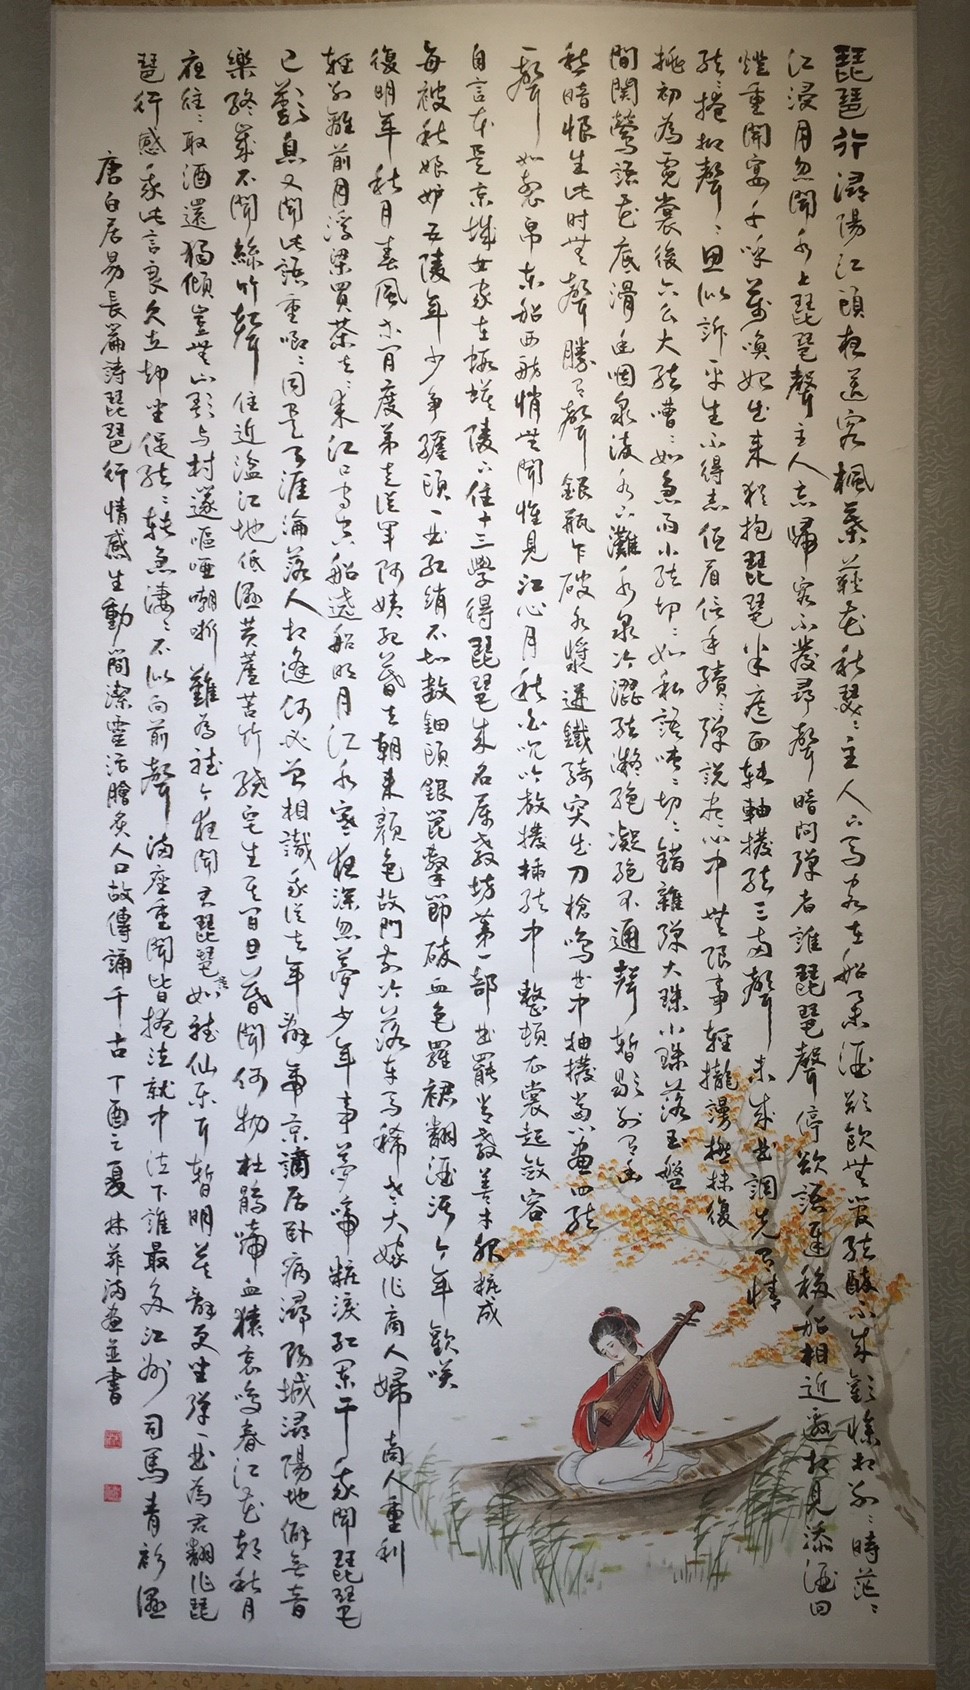 琵琶行 潯陽江頭夜送客楓葉荻花秋瑟〻主人下馬客在船舉酒欲飲無管絃醉不成歡慘相別〻時茫〻
江浸月忽聞水上琵琶聲主人忘歸客不發尋聲暗問彈者誰琵琶聲停欲語遲移船相近邀相見添酒回
燈重開宴千呼萬喚始出來猶抱琵琶半遮面轉軸撥絃三兩聲未成曲調先有情
絃〻掩抑聲〻思似訴平生不得志低眉信手續〻彈說盡心中無限事輕攏謾撚抹復
挑初為霓裳後六么大絃嘈〻如急雨小絃切〻如私語嘈〻切〻錯雜彈大珠小珠落玉盤
間關鶯語花底滑幽咽泉流水下灘水泉冷澀絃凝絶凝絶不通聲暫歇別有幽
愁暗恨生此时無聲勝有聲銀瓶乍破水漿迸鐵騎突出刀槍鳴曲中抽撥當心畫四絃
一聲如裂帛東船西舫悄無聞惟見江心月秋白沉吟放撥插絃中整頓衣裳起斂容
自言本是京城女家在蝦蟆陵下住十三學得琵琶成名屬教坊第一部曲罷常教善才服粧成
每被秋娘妒五陵年少争纏頭一曲紅綃不知數鈿頭銀篦擊節碎血色羅裙翻酒污今年歡笑
復明年秋月春風等閒度弟走從軍阿姨死暮去朝來顏色故門前冷落車馬稀老大嫁作商人婦商人重利
輕別離前月浮梁買茶去〻來江口守空船遶船明月江水寒夜深忽夢少年事夢啼粧淚紅闌干我聞琵琶
已歎息又聞此語重唧〻同是天涯淪落人相逢何必曾相識我從去年辭帝京謫居卧病潯陽城潯陽地僻無音
樂終歲不聞絲竹聲住近湓江地低濕黄蘆苦竹繞宅生其間旦暮聞何物杜鵑啼血猿哀鳴春江花朝秋月
夜往〻取酒還獨傾豈無山歌与村邃嘔啞嘲哳難為聽今夜聞君琵琶語如聽仙乐耳暫明莫辭更坐彈一曲為君翻作琵
琶行感我此言良久立却坐促絃〻轉急淒〻不似向前聲滿座重聞皆掩泣就中泣下誰最多江州司馬青衫濕
唐白居易長篇詩琵琶行情感生動簡潔靈活膾炙人口故傳誦千古丁酉之夏林 畫並書